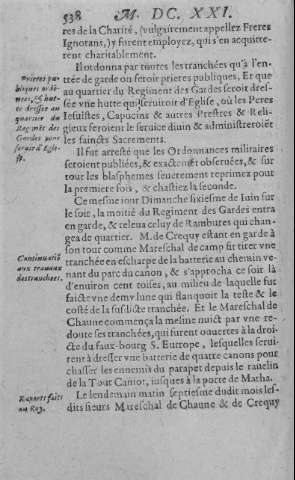 538 M. DC. XXI.
res de la Charité, (vulgairement appellez Freres
Ignorans,) y furent employez, qui s'en acquitte-
rent charitablement.
Il ordonna par toutes les tranchées qu'à l'en-
trée de garde on feroit prieres publiques, Et que
au quartier du Regiment des Gardes seroit dres-
sée vne hutte qui seruiroit d'Eglise, où les Peres
Iesuistes, Capucins & autres Prestres & Reli-
gieux feroient le seruice diuin & administreroiẽt
les saincts Sacrements.
Prieres pu-
bliques ordõ-
nees, & hut-
te dressee au
quartier du
Regimẽt des
Gardes pour
seruir d'Egli-
se.
Il fut arresté que les Ordonnances militaires
seroient publiées, & exactemẽt obseruées, & sur
tout les blasphemes seuerement reprimez pour
la premiere fois, & chastiez la seconde.
Ce mesme iour Dimanche sixiesme de Iuin sur
le soir, la moitié du Regiment des Gardes entra
en garde, & releua celuy de Rambures qui chan-
gea de quartier. M. de Crequy estant en garde à
son tour comme Mareschal de camp fit tirer vne
tranchée en escharpe de la batterie au chemin ve-
nant du parc du canon, & s'approcha ce soir là
d'enuiron cent toises, au milieu de laquelle fut
faicte vne demy lune qui flanquoit la teste & le
costé de la susdicte tranchée. Et le Mareschal de
Chaune commença la mesme nuict par vne re-
doute ses tranchées, qui furent ouuertes à la droi-
cte du faux-bourg S. Eutrope, lesquelles serui-
rent à dresser vne batterie de quatre canons pour
chasser les ennemis du parapet depuis le rauelin
de la Tour Caniot, iusques à la porte de Matha.
Continuatiõ
aux trauaux
des tranchees.
Le lendemain matin septiesme dudit mois les-
dits sieurs Mareschal de Chaune & de Crequy
Raports faits
au Roy.